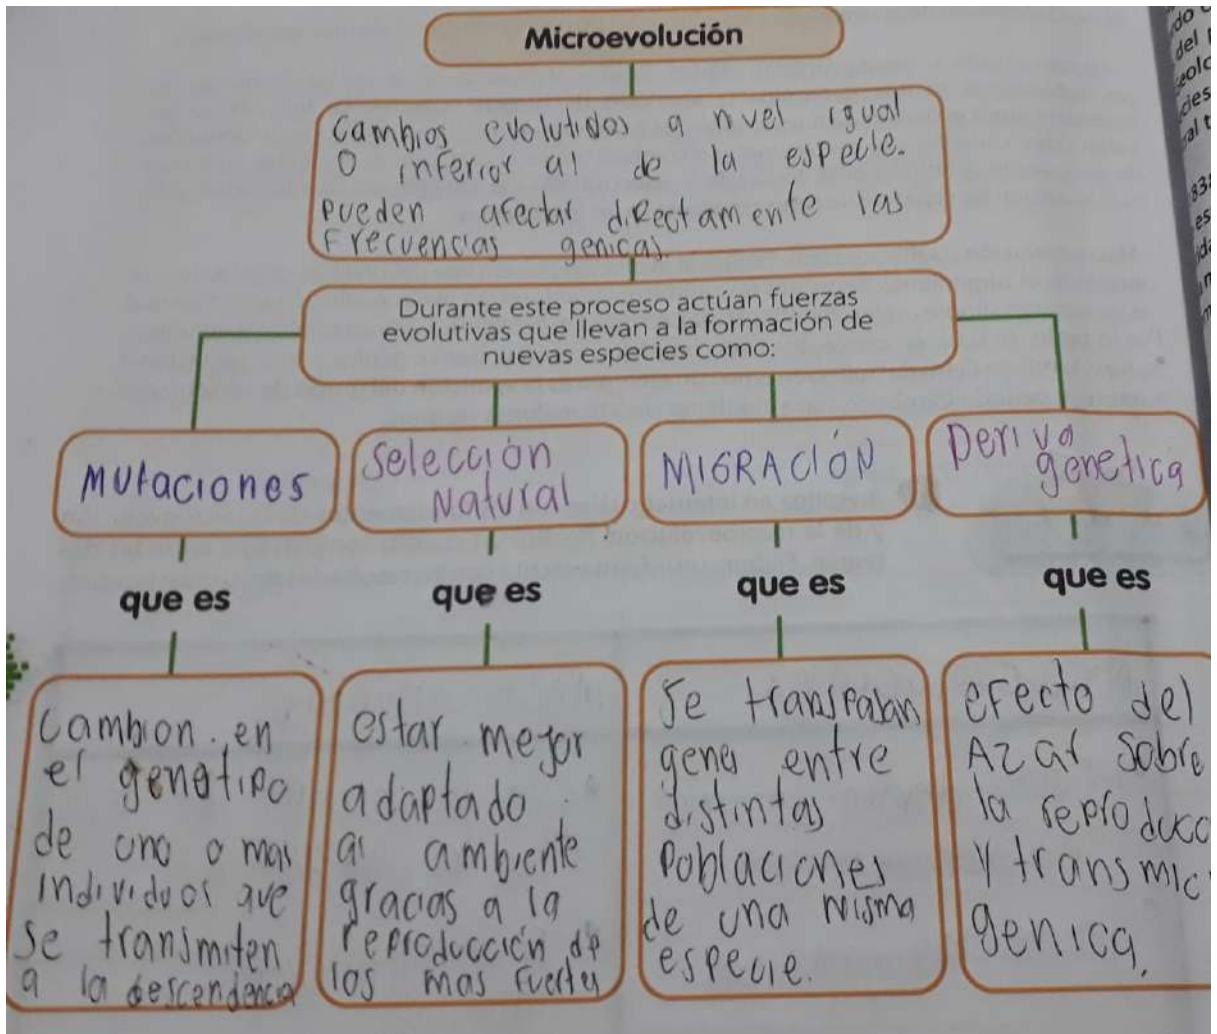 Microevolución
Cambios evolutivos a nivel igual
O inferior al de la especie.
pueden afectar directamente las
Frecuencias genicas.
Durante este proceso actúan fuerzas
evolutivas que llevan a la formación de
nuevas especies como:
Mutaciones
Selección
Natural
MIGRACIÓN
Deriva
genetica
que es
que es
que es
que es
Cambion en
el genotipo
de uno o mas
individuos que
se transmiten
a la descendencia
estar mejor
adaptado
al ambiente
gracias a la
reproducción de
los mas fuertes
Se
genes entre
distintas
Poblaciones
de una misma
especie.
efecto del
Azar sobre
la reproducc
y transmic
genica.